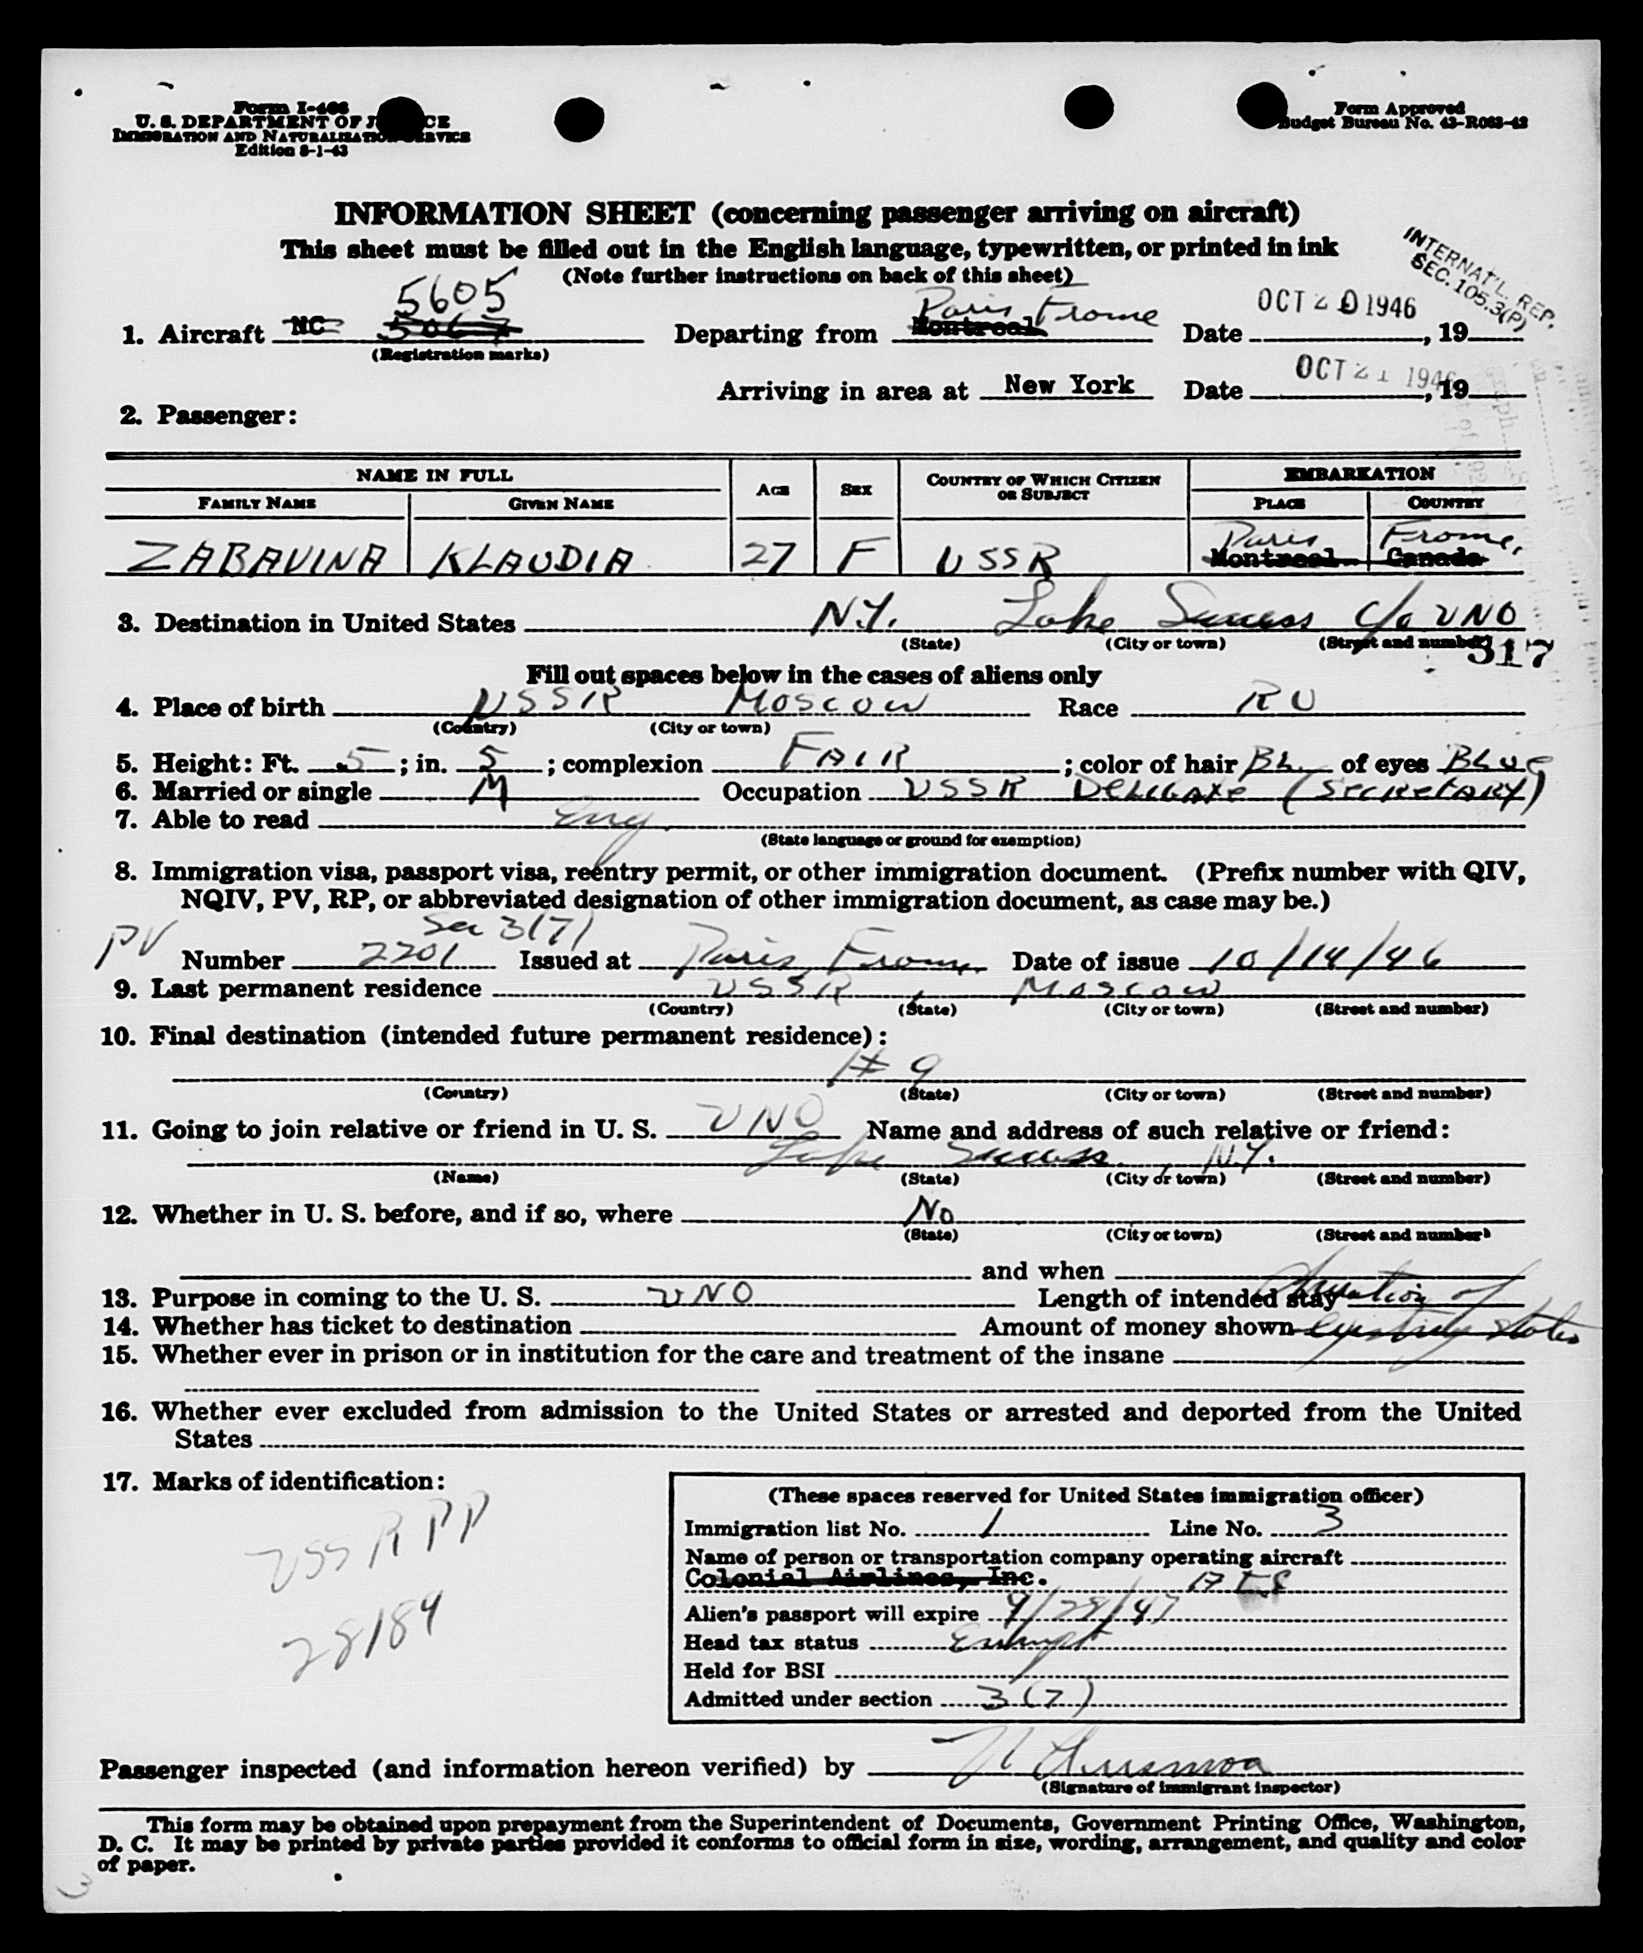 Form I-466
U. S. DEPARTMENT OF JUSTICE
IMMIGRATION AND NATURALIZATION SERVICE
Edition 8-1-43
Form Approved
Budget Bureau No. 43-R063-42
INFORMATION SHEET (concerning passenger arriving on aircraft)
This sheet must be filled out in the English language, typewritten, or printed in ink
(Note further instructions on back of this sheet)
INTERNAT'L. REP.
SEC. 105.3(P)
5605 Paris France OCT 20 1946
1. Aircraft NC Departing from Montreal Date , 19
(Registration marks)
Arriving in area at New York Date OCT 21 1946, 19
2. Passenger:
NAME IN FULL AGE SEX COUNTRY OF WHICH CITIZEN OR SUBJECT EMBARKATION
FAMILY NAME GIVEN NAME PLACE COUNTRY
Paris France
ZABAVINA KLAUDIA 27 F USSR Montreal Canada
3. Destination in United States N.Y. Lake Success c/o UNO
(State) (City or town) (Street and number)
317
Fill out spaces below in the cases of aliens only
4. Place of birth USSR Moscow Race RU
(Country) (City or town)
5. Height: Ft. 5; in. 5; complexion FAIR; color of hair BL. of eyes BLUE
6. Married or single M Occupation USSR DELEGATE (SECRETARY)
7. Able to read Eng.
(State language or ground for exemption)
8. Immigration visa, passport visa, reentry permit, or other immigration document. (Prefix number with QIV,
NQIV, PV, RP, or abbreviated designation of other immigration document, as case may be.)
Sec 3(7)
PV Number 2201 Issued at Paris, France Date of issue 10/14/46
9. Last permanent residence USSR, Moscow
(Country) (State) (City or town) (Street and number)
10. Final destination (intended future permanent residence):
# 9
(Country) (State) (City or town) (Street and number)
11. Going to join relative or friend in U. S. UNO Name and address of such relative or friend:
Lake Success, N.Y.
(Name) (State) (City or town) (Street and number)
12. Whether in U. S. before, and if so, where No
(State) (City or town) (Street and number)
and when
13. Purpose in coming to the U. S. UNO Length of intended stay Duration of
14. Whether has ticket to destination Amount of money shown existing status
15. Whether ever in prison or in institution for the care and treatment of the insane
16. Whether ever excluded from admission to the United States or arrested and deported from the United
States
17. Marks of identification:
USSR PP
28184
(These spaces reserved for United States immigration officer)
Immigration list No. 1 Line No. 3
Name of person or transportation company operating aircraft
Colonial Airlines, Inc.
Alien's passport will expire 9/28/47
Head tax status Exempt
Held for BSI
Admitted under section 3(7)
Passenger inspected (and information hereon verified) by
(Signature of immigrant inspector)
This form may be obtained upon prepayment from the Superintendent of Documents, Government Printing Office, Washington,
D. C. It may be printed by private parties provided it conforms to official form in size, wording, arrangement, and quality and color
of paper.
3